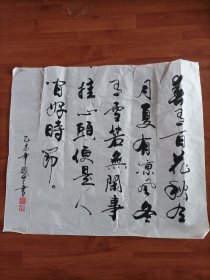 春有百花秋有
月夏有凉风冬
有雪若無閑事
挂心頭便是人
间好時節
乙未年書